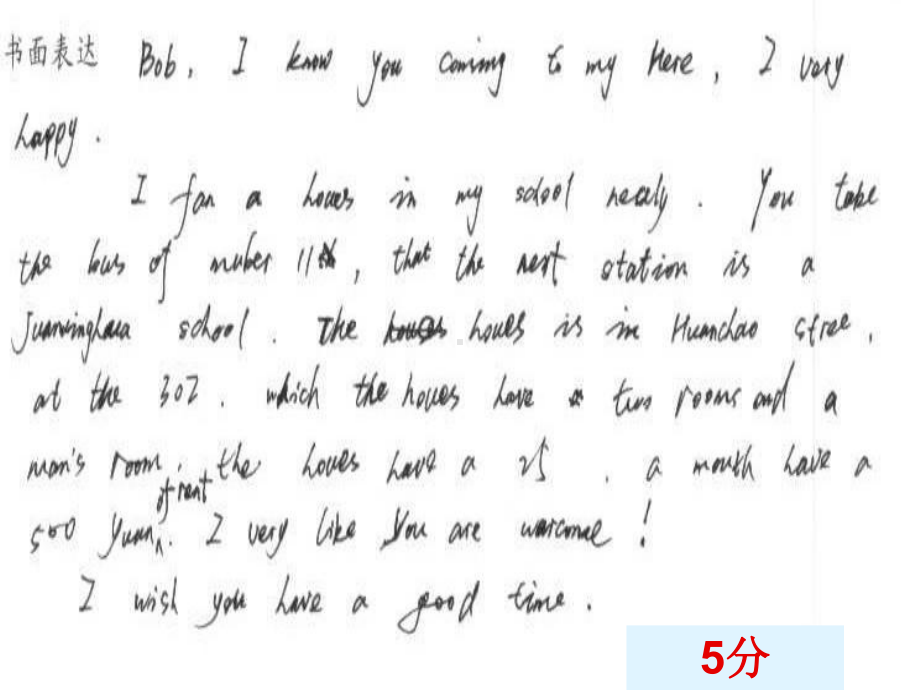 书面表达 Bob, I know you coming to my here, I very
happy.
I fan a houes in my sdool nealy. You take
the bus of muber 11th, that the next station is a
Juanxinghua school. The houes houes is in Huanchao stree,
at the 302. which the houes have two rooms and a
man's room. the houes have a 25 . a mouth have a
500 yuan of rent. I very like you are warcome!
I wish you have a good time.
5分